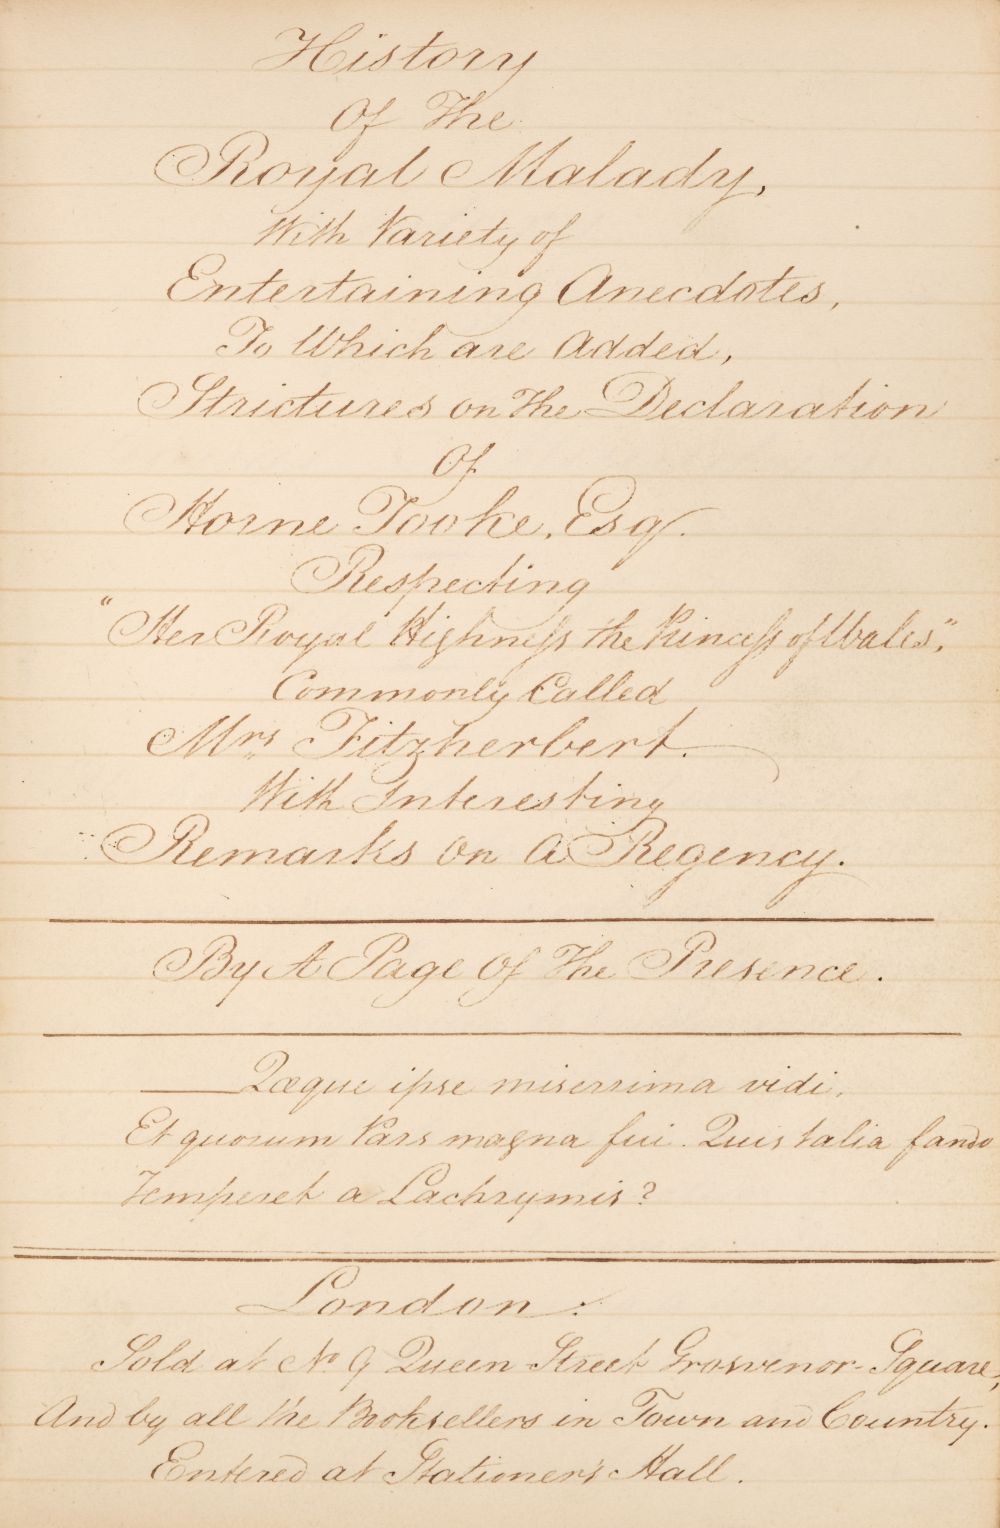 History
Of The
Royal Malady,
With Variety of
Entertaining Anecdotes,
To Which are Added,
Strictures on The Declaration
Of
Horne Tooke, Esq.
Respecting
"Her Royal Highneſs the Princeſs of Wales",
Commonly Called
Mrs Fitzherbert.
With Interesting
Remarks On A Regency.
By A Page Of The Presence.
Qæque ipse miserrima vidi,
Et quorum Pars magna fui. Quis talia fando
Temperet a Lachrymis?
London:
Sold at No 9 Queen Street Grosvenor-Square,
And by all the Booksellers in Town and Country.
Entered at Stationer's Hall.